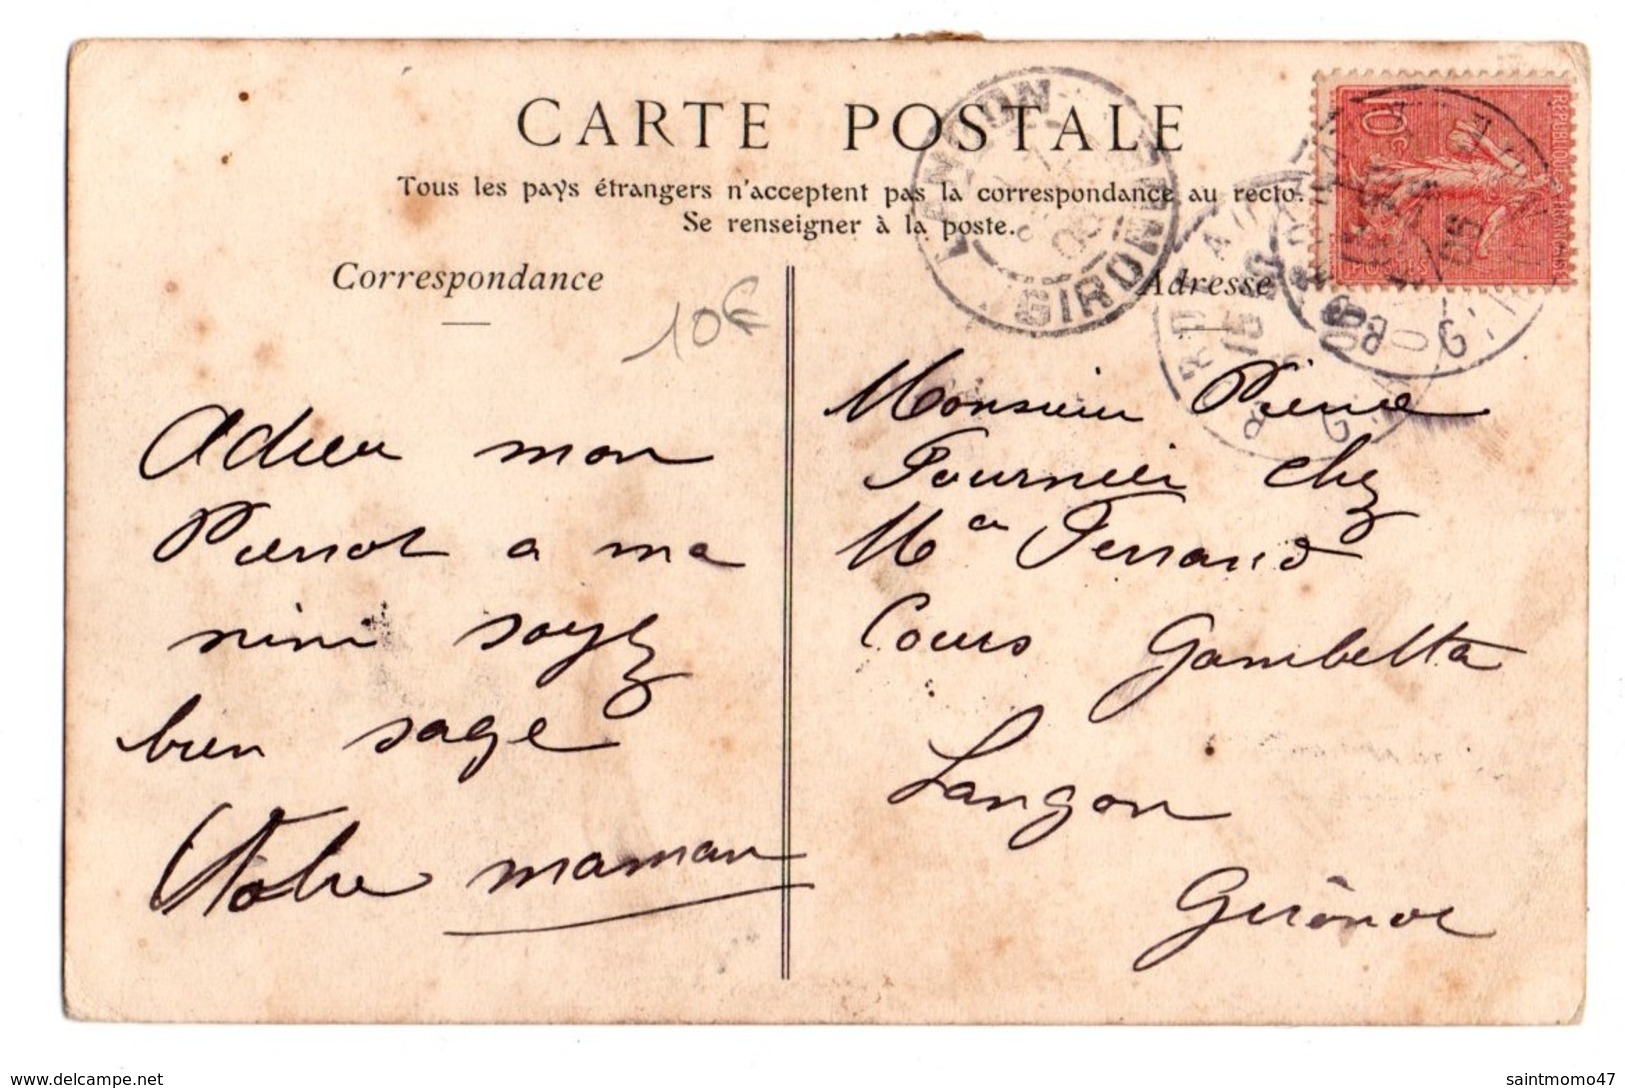 CARTE POSTALE
Tous les pays étrangers n'acceptent pas la correspondance au recto.
Se renseigner à la poste.
Correspondance
Adresse
10€
LANGON
GIRONDE
REPUBLIQUE FRANCAISE
10c
POSTES
Adieu mon
Pierrot a ma
nini soyez
bien sage
Votre maman
Monsieur Pierre
Fournier chez
Ma Ferrand
Cours Gambetta
Langon
Gironde
www.delcampe.net
saintmomo47